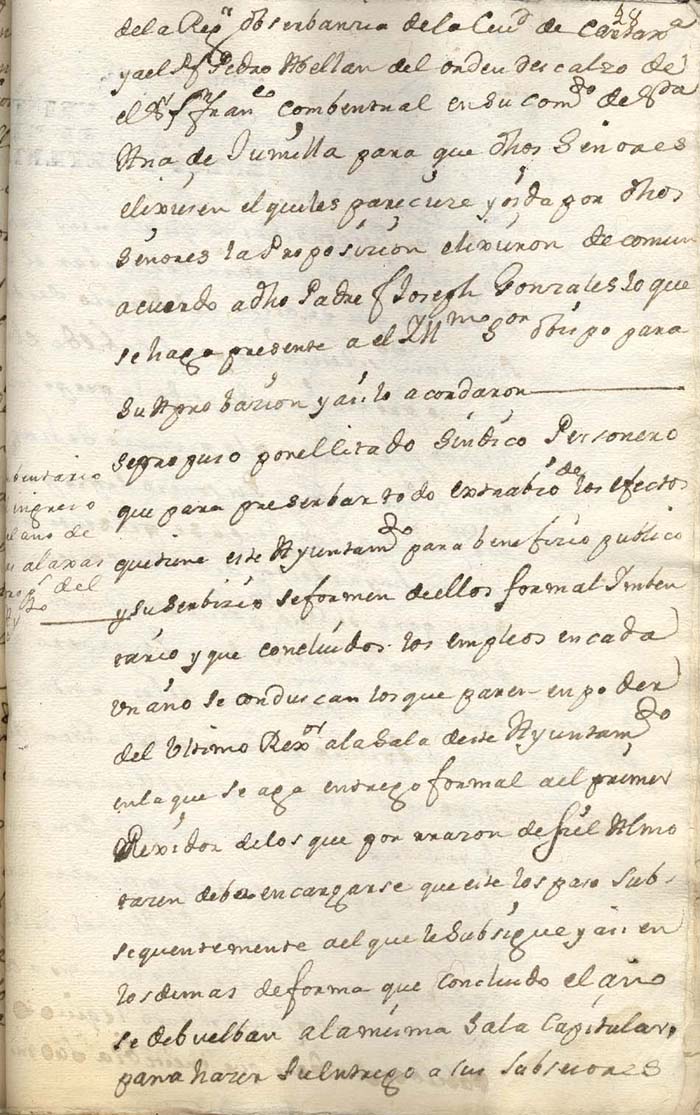 28
dela Regr Obserbanzia dela Ciud de Cartaxa
y ael P f Pedro Abellan del orden descalzo de
el Sr Sn Franco combentual en su Combto de Sta
Ana de Jumilla para que dhos Señores
elixiesen el quiles pareciere y oida por dhos
Señores la Proposizion elixieron de comun
acuerdo a dho Padre f Joseph Gonzales lo que
se haga presente a el Illmo Sor Obispo para
su Aprobazion y asi lo acordaron
se propuso por el litado Sindico Personero
que para preserbar todo extrabio de los efectos
que tiene este Ayuntamto para benefizio publico
y su serbizio se formen de ellos formal Imben
tario y que concluidos los empleos en cada
un año se conduscan los que paren en poder
del Ultimo Rexor ala Sala de este Ayuntamto
en la que se aga entrego formal ael primer
Rexidor delos que por rrazon de fiel Almo
tazen debe encargarse que este los pase sub-
sequentemente ael que le subsigue y asi en
los demas de forma que concluido el año
se debuelban ala misma Sala Capitular,
para hazer su entrego a sus subsesores
bentario
ingreso
el año de
alaxas
prop del
Ayto